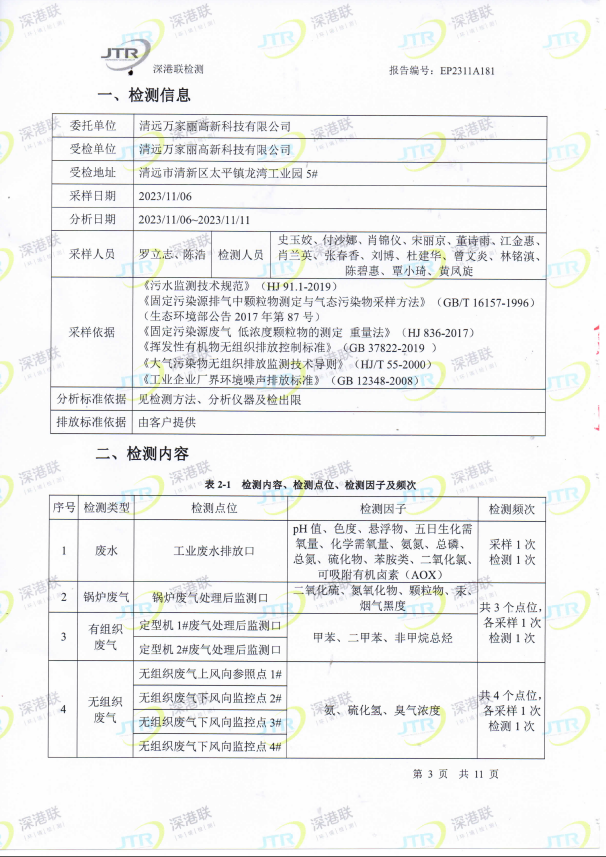 JTR
深港联检测
报告编号：EP2311A181
一、检测信息
委托单位 清远万家丽高新科技有限公司
受检单位 清远万家丽高新科技有限公司
受检地址 清远市清新区太平镇龙湾工业园 5#
采样日期 2023/11/06
分析日期 2023/11/06~2023/11/11
采样人员 罗立志、陈浩 检测人员 史玉姣、付沙娜、肖锦仪、宋丽京、董诗雨、江金惠、
肖兰英、张春香、刘博、杜建华、曾文炎、林铭滇、
陈碧惠、覃小琦、黄凤旋
采样依据
《污水监测技术规范》（HJ 91.1-2019）
《固定污染源排气中颗粒物测定与气态污染物采样方法》（GB/T 16157-1996）
（生态环境部公告 2017 年第 87 号）
《固定污染源废气 低浓度颗粒物的测定 重量法》（HJ 836-2017）
《挥发性有机物无组织排放控制标准》（GB 37822-2019 ）
《大气污染物无组织排放监测技术导则》（HJ/T 55-2000）
《工业企业厂界环境噪声排放标准》（GB 12348-2008）
分析标准依据 见检测方法、分析仪器及检出限
排放标准依据 由客户提供
二、检测内容
表 2-1 检测内容、检测点位、检测因子及频次
序号 检测类型 检测点位 检测因子 检测频次
1 废水 工业废水排放口 pH 值、色度、悬浮物、五日生化需
氧量、化学需氧量、氨氮、总磷、
总氮、硫化物、苯胺类、二氧化氯、
可吸附有机卤素（AOX）
采样 1 次
检测 1 次
2 锅炉废气 锅炉废气处理后监测口 二氧化硫、氮氧化物、颗粒物、汞、
烟气黑度
共 3 个点位，
各采样 1 次
检测 1 次
3 有组织
废气
定型机 1#废气处理后监测口
定型机 2#废气处理后监测口
甲苯、二甲苯、非甲烷总烃
4 无组织
废气
无组织废气上风向参照点 1#
无组织废气下风向监控点 2#
无组织废气下风向监控点 3#
无组织废气下风向监控点 4#
氨、硫化氢、臭气浓度
共 4 个点位，
各采样 1 次
检测 1 次
第 3 页 共 11 页